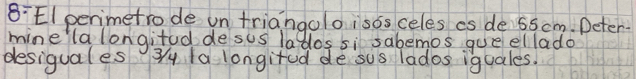 8- El perimetro de un triángulo isósceles es de 55cm. Deter-
mine la longitud de sus lados si sabemos que el lado
desigual es 3/4 la longitud de sus lados iguales.